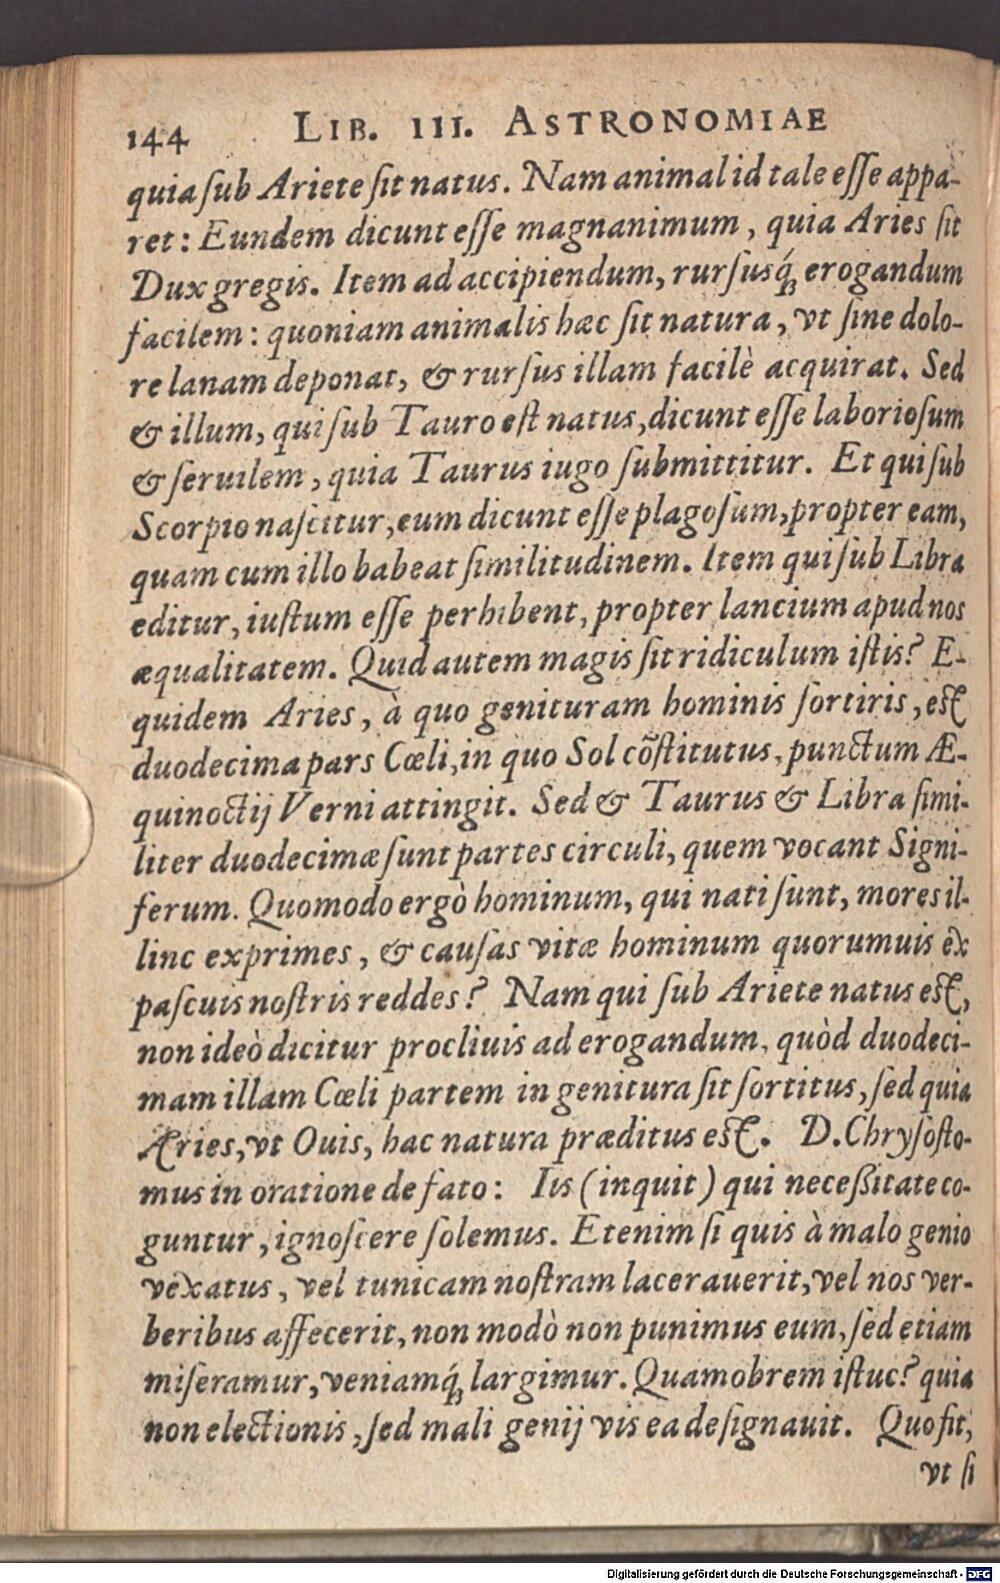 144 LIB. III. ASTRONOMIAE
quia ſub Ariete ſit natus. Nam animal id tale eſſe appa-
ret: Eundem dicunt eſſe magnanimum, quia Aries ſit
Dux gregis. Item ad accipiendum, rurſusq́; erogandum
facilem: quoniam animalis hæc ſit natura, vt ſine dolo-
re lanam deponat, & rurſus illam facilè acquirat. Sed
& illum, qui ſub Tauro eſt natus, dicunt eſſe laborioſum
& ſeruilem, quia Taurus iugo ſubmittitur. Et qui ſub
Scorpio naſcitur, eum dicunt eſſe plagoſum, propter eam,
quam cum illo habeat ſimilitudinem. Item qui ſub Libra
editur, iuſtum eſſe perhibent, propter lancium apud nos
æqualitatem. Quid autem magis ſit ridiculum iſtis? E-
quidem Aries, à quo genituram hominis ſortiris, eſt
duodecima pars Cœli, in quo Sol cõſtitutus, punctum Æ-
quinoctij Verni attingit. Sed & Taurus & Libra ſimi-
liter duodecimæ ſunt partes circuli, quem vocant Signi-
ferum. Quomodo ergò hominum, qui nati ſunt, mores il-
linc exprimes, & cauſas vitæ hominum quorumuis ex
paſcuis noſtris reddes? Nam qui ſub Ariete natus eſt,
non ideò dicitur procliuis ad erogandum, quòd duodeci-
mam illam Cœli partem in genitura ſit ſortitus, ſed quia
Aries, vt Ouis, hac natura præditus eſt. D. Chryſoſto-
mus in oratione de fato: Iis (inquit) qui neceßitate co-
guntur, ignoſcere ſolemus. Etenim ſi quis à malo genio
vexatus, vel tunicam noſtram lacerauerit, vel nos ver-
beribus affecerit, non modò non punimus eum, ſed etiam
miſeramur, veniamq́; largimur. Quamobrem iſtuc? quia
non electionis, ſed mali genij vis ea deſignauit. Quo fit,
vt ſi
Digitalisierung gefördert durch die Deutsche Forschungsgemeinschaft - DFG